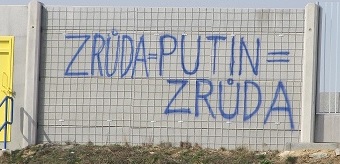 ZRŮDA=PUTIN=
ZRŮDA